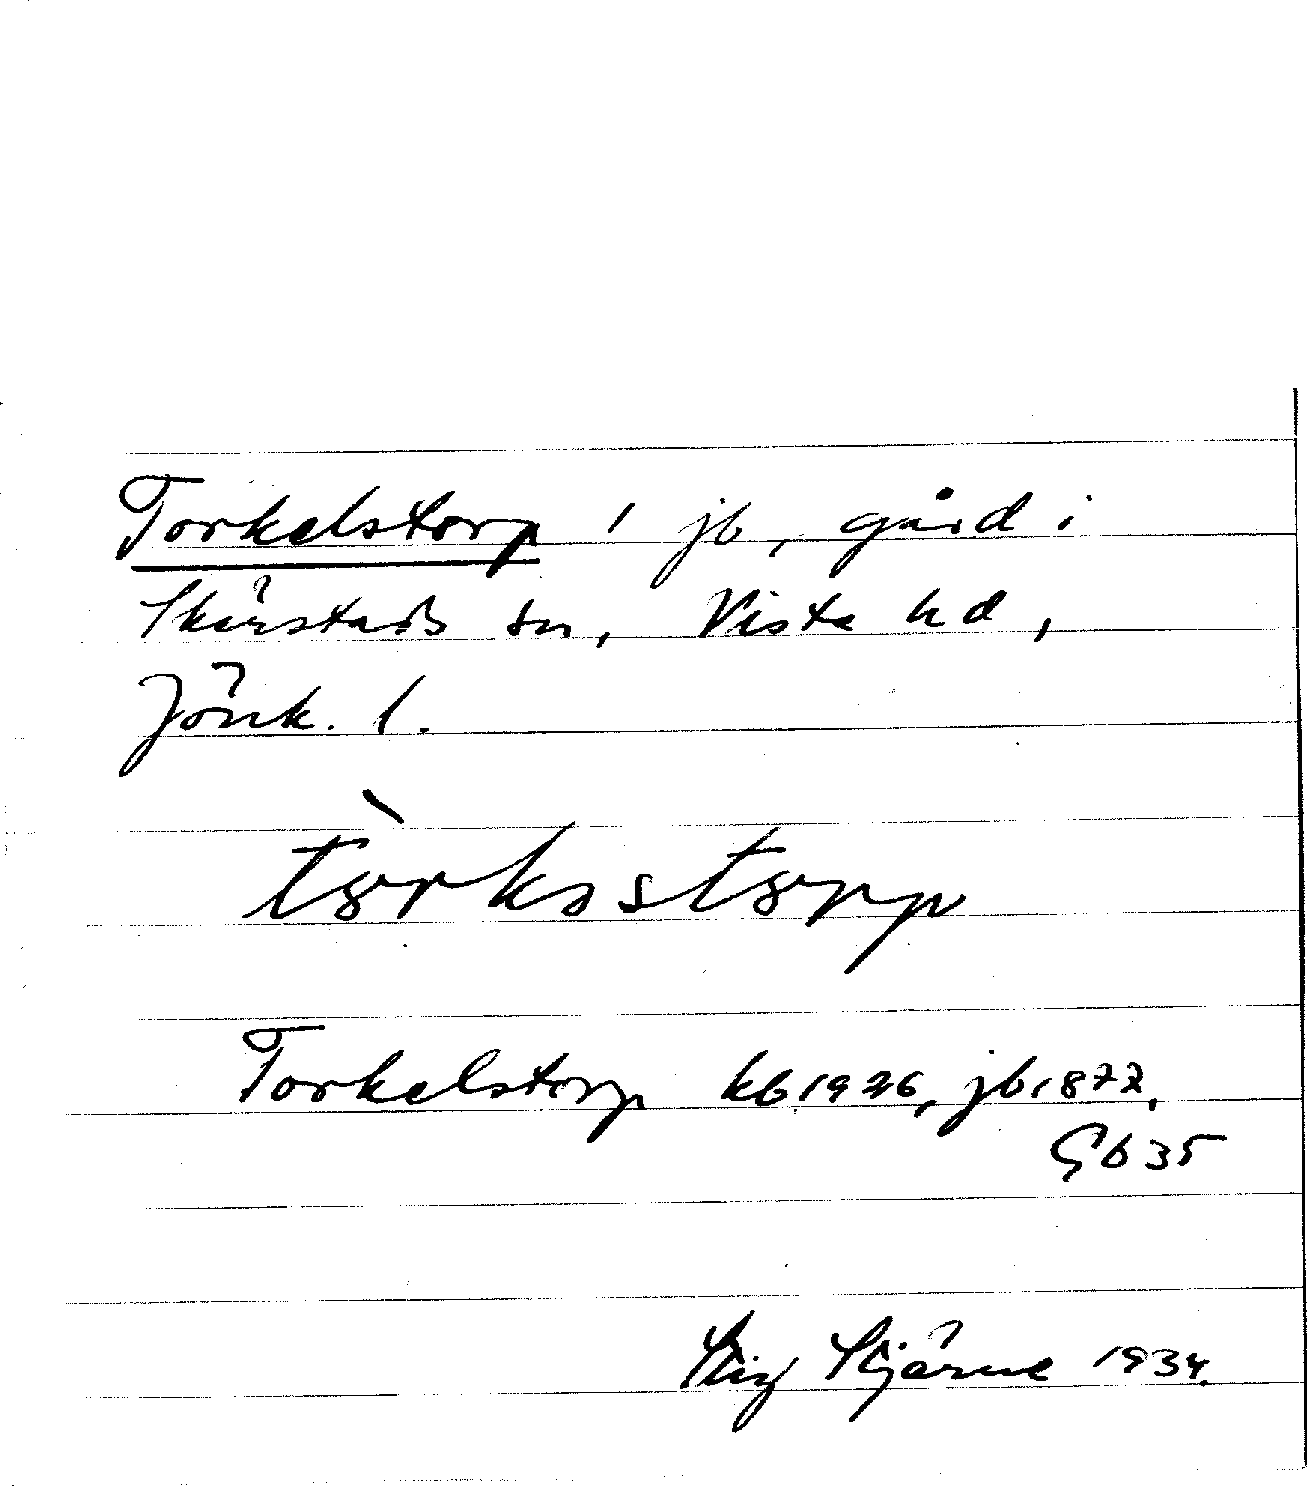 Torkelstorp 1 jb, gård i
Skärstads sn, Vista hd,
Jönk. l.
tòrkəstorp
Torkelstorp kb 1926, jb 1872,
Gb 35
Stig Stjärne 1934.